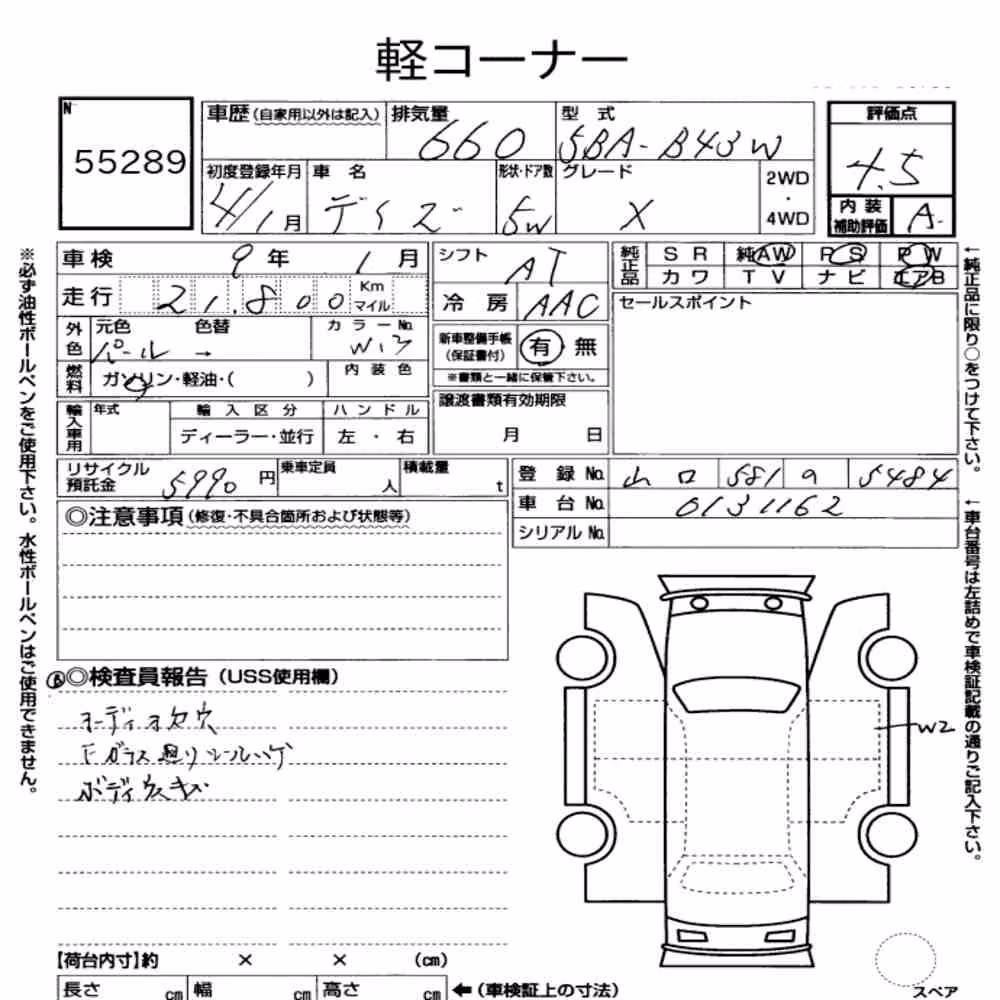 軽コーナー
N
55289
車歴(自家用以外は記入) 排気量 660 型 式 5BA-B43W
初度登録年月 4/1月 車 名 デイズ 形状・ドア数 5W グレード X 2WD・4WD
評価点
4.5
内 装
補助評価 A-
車検 9年 1月
走行 21,800 Km マイル
外色 元色 パール 色替 → カラーNo. W13
燃料 ガソリン・軽油・( ) 内装色
輸入車用 年式 輸入区分 ハンドル
ディーラー・並行 左・右
シフト AT
冷房 AAC
新車整備手帳
(保証書付) 有 無
※書類と一緒に保管下さい。
譲渡書類有効期限
月 日
純正品 SR 純AW PS PW
カワ TV ナビ エアB
セールスポイント
リサイクル
預託金 5990円 乗車定員 人 積載量 t
登録No. 山口 581 5484
車台No. 0131162
シリアルNo.
◎注意事項(修復・不具合箇所および状態等)
◎検査員報告(USS使用欄)
オーディオカケ穴
Fガラス廻りシールハゲ
ボディウスキズ
W2
【荷台内寸】約 × × (cm)
長さ cm 幅 cm 高さ cm ←(車検証上の寸法)
スペア
※必ず油性ボールペンをご使用下さい。水性ボールペンはご使用できません。
←純正品に限り○をつけて下さい。
←車台番号は左詰めで車検証記載の通りご記入下さい。